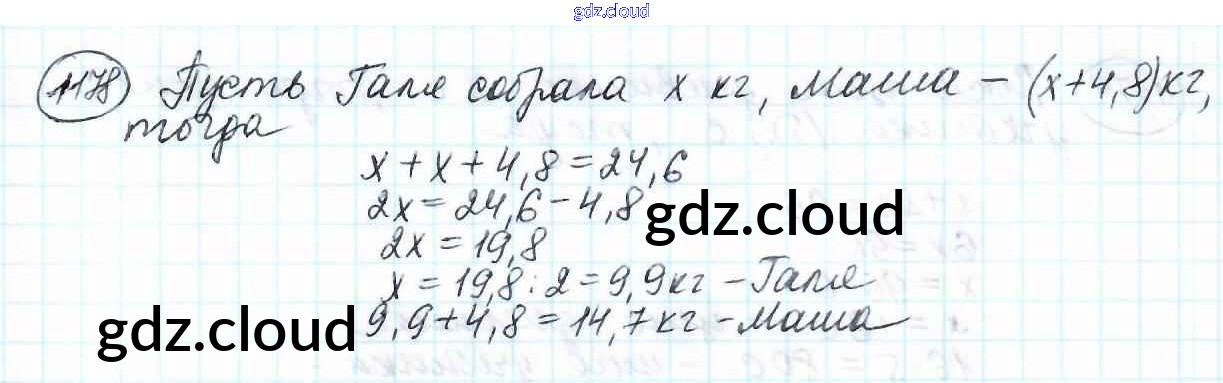 gdz.cloud
1178 Пусть Галя собрала x кг, Маша – (x+4,8)кг,
тогда
x + x + 4,8 = 24,6
2x = 24,6 – 4,8
gdz.cloud
2x = 19,8
x = 19,8 : 2 = 9,9кг – Галя
gdz.cloud
9,9 + 4,8 = 14,7кг – Маша